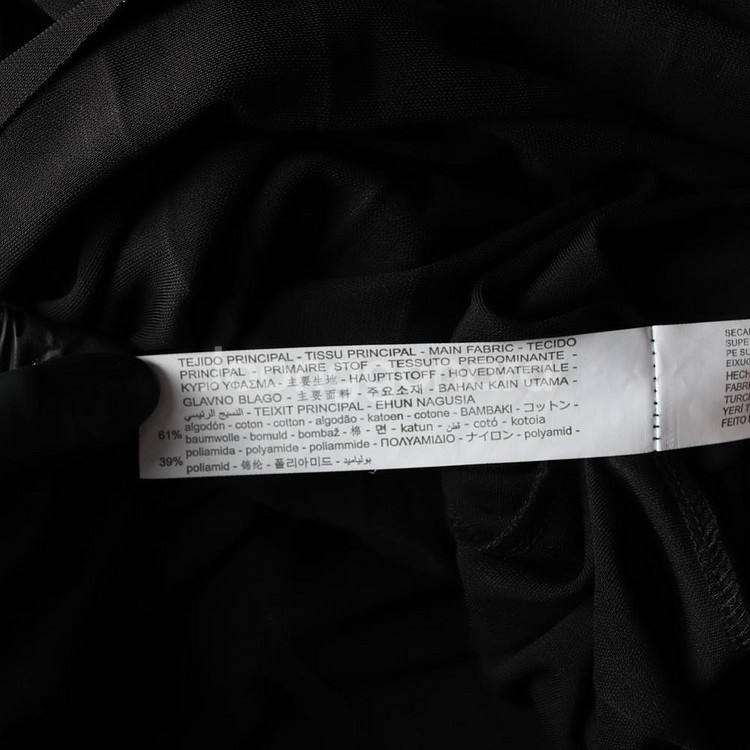 TEJIDO PRINCIPAL - TISSU PRINCIPAL - MAIN FABRIC - TECIDO
PRINCIPAL - PRIMAIRE STOF - TESSUTO PREDOMINANTE -
ΚΥΡΙΟ ΥΦΑΣΜΑ - 主要生地 - HAUPTSTOFF - HOVEDMATERIALE -
GLAVNO BLAGO - 主要面料 - 주요소재 - BAHAN KAIN UTAMA -
النسيج الرئيسي - TEIXIT PRINCIPAL - EHUN NAGUSIA
algodón - coton - cotton - algodão - katoen - cotone - ΒΑΜΒΑΚΙ - コットン -
61% baumwolle - bomuld - bombaž - 棉 - 면 - katun - قطن - cotó - kotoia
poliamida - polyamide - poliammide - ΠΟΛΥΑΜΙΔΙΟ - ナイロン - polyamid -
39% poliamid - 锦纶 - 폴리아미드 - بولياميد
SECA
SUPE
PE SU
EIXUG
HECH
FABRI
TURC
YERİ T
FEITO